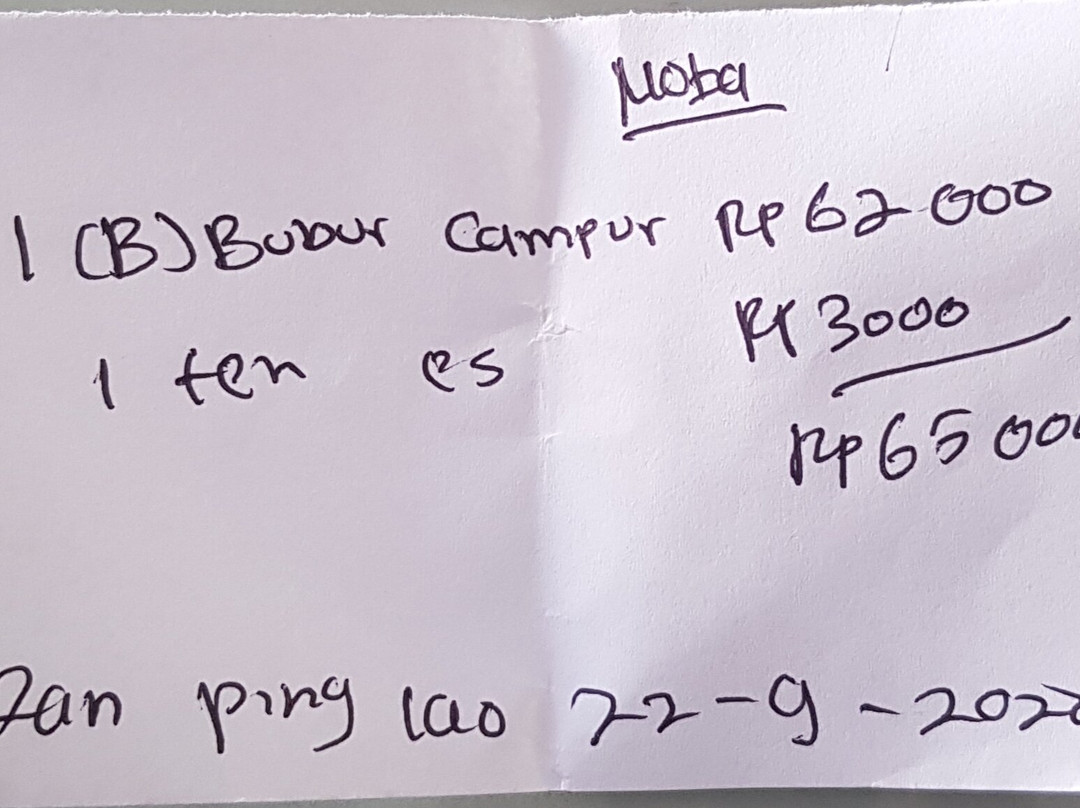 Moba
1 (B) Bubur Campur Rp 62 000
1 teh es Rp 3000
Rp 65 000
Zan ping lao 22-9-2022